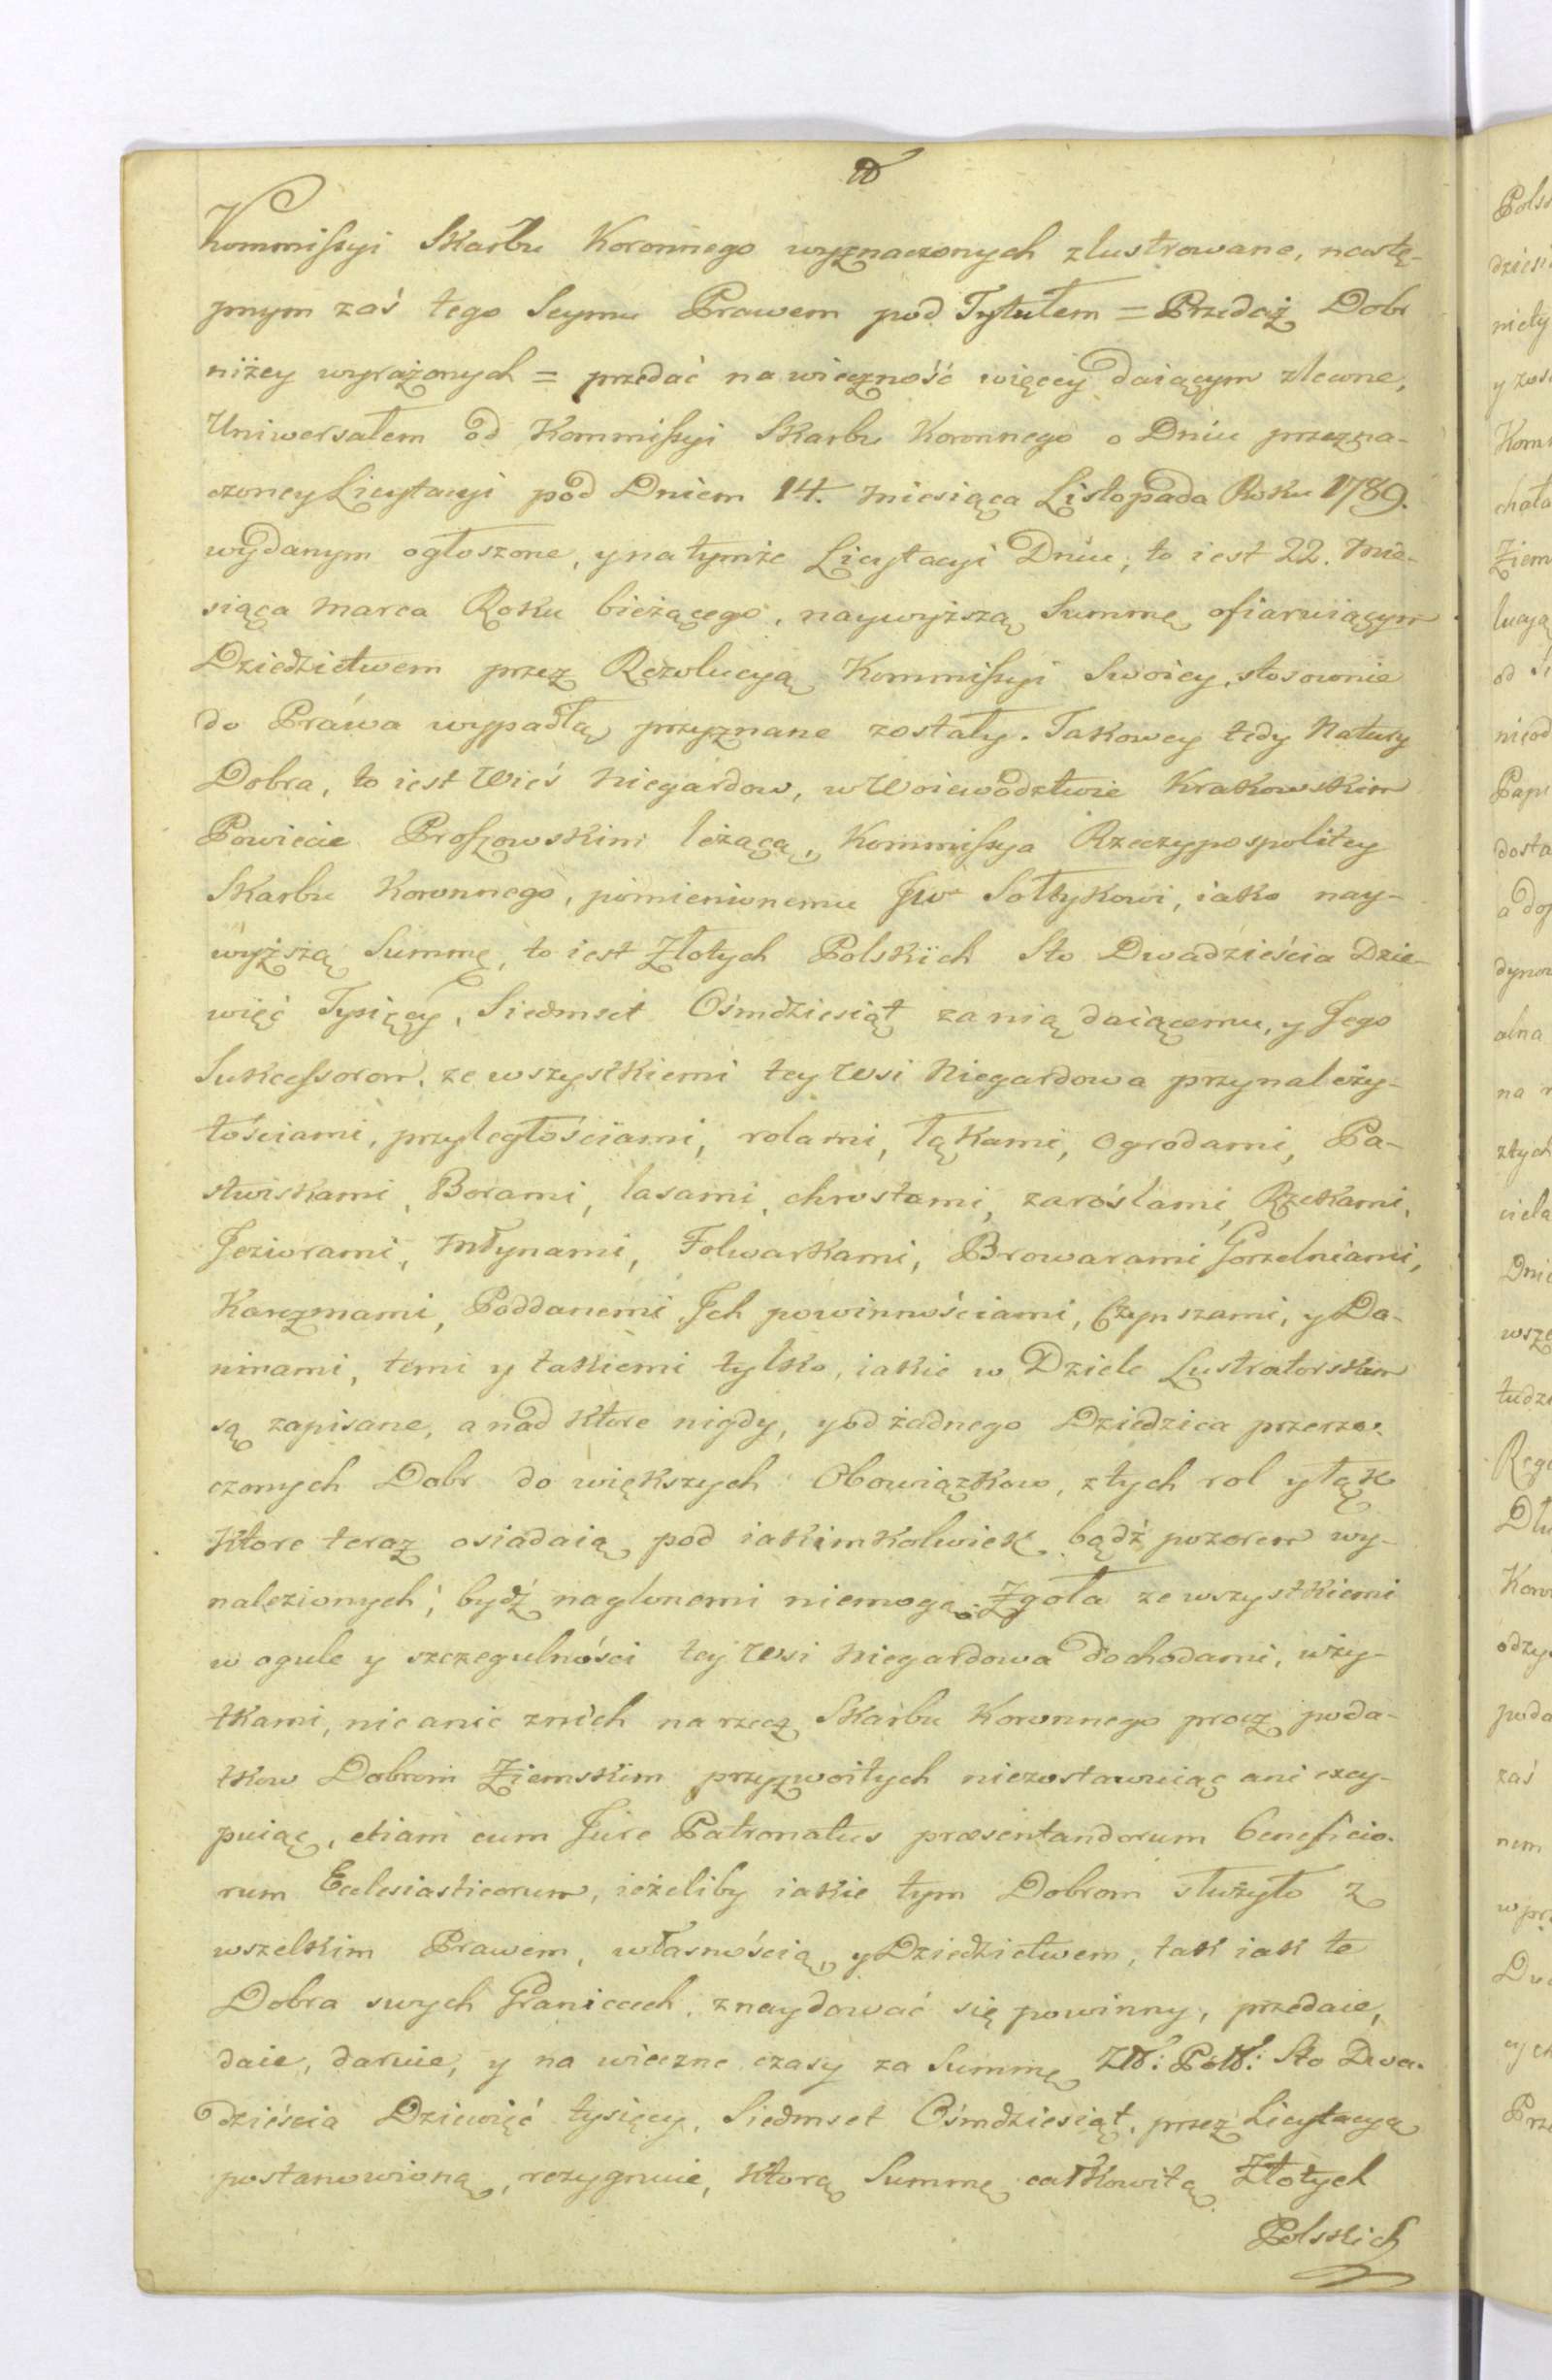 Kommissyi Skarbu Koronnego wyznaczonych zlustrowane, nastę-
pnym zaś tego Seymu Prawem pod Tytułem = Przedaż Dobr
niżey wyrażonych = przedać na wieczność więcey daiącym zlecone,
Uniwersałem od Kommissyi Skarbu Koronnego o Dniu przezna-
czoney Licytacyi pod Dniem 14. Miesiąca Listopada Roku 1789.
wydanym ogłoszone, y na tymże Licytacyi Dniu, to iest 22. Mie-
siąca Marca Roku bieżącego, naywyższą Summę ofiaruiącym
Dziedzictwem przez Rezolucyą Kommissyi Swoiey, stosownie
do Prawa wypadłą, przyznane zostały. Takowey tedy Natury
Dobra, to iest Wieś Niegardow, w Woiewodztwie Krakowskim
Powiecie Proszowskim leżącą, Kommissya Rzeczypospolitey
Skarbu Koronnego, pomienionemu JW Sołtykowi, iako nay-
wyższą Summę, to iest Złotych Polskich Sto Dwadzieścia Dzie-
więć Tysięcy, Siedmset Ośmdziesiąt za nią daiącemu, y Jego
Sukcessorom, ze wszystkiemi tey Wsi Niegardowa przynależy-
tościami, przyległościami, rolami, łąkami, ogrodami, Pa-
stwiskami, Borami, lasami, chrostami, zaroślami, Rzekami,
Jeziorami, Młynami, Folwarkami, Browarami Gorzelniami,
Karczmami, Poddanemi Jch powinnościami, Czynszami, y Da-
ninami, temi y takiemi tylko, iakie w Dziele Lustratorskim
są zapisane, a nad ktore nigdy, y od żadnego Dziedzica przerze-
czonych Dobr do większych Obowiązkow, z tych rol y łąk
ktore teraz osiadaią, pod iakimkolwiek bądź pozorem wy-
nalezionych, bydź naglonemi niemogą. Zgoła ze wszystkiemi
w ogule y szczegulności tey Wsi Niegardowa dochodami, uży-
tkami, nic a nic z nich na rzecz Skarbu Koronnego procz poda-
tkow Dobrom Ziemskim przyzwoitych niezostawuiąc ani excy-
puiąc, etiam cum Jure Patronatus præsentandorum beneficio-
rum Ecclesiasticorum, ieżeliby iakie tym Dobrom służyło z
wszelkim Prawem, własnością, y Dziedzictwem, tak iak te
Dobra swych Granicach, znaydować się powinny, przedaie,
daie, daruie, y na wieczne czasy za Summę Zł: Pol: Sto Dwa-
dzieścia Dziewięć tysięcy, Siedmset Ośmdziesiąt, przez Licytacyą
postanowioną, rezygnuie, ktorą Summę całkowitą Złotych
Polskich